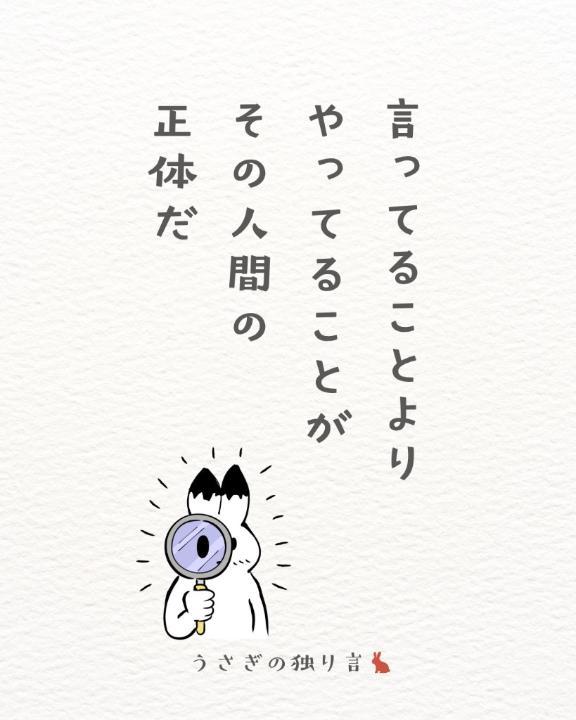 言ってることより
やってることが
その人間の
正体だ
うさぎの独り言